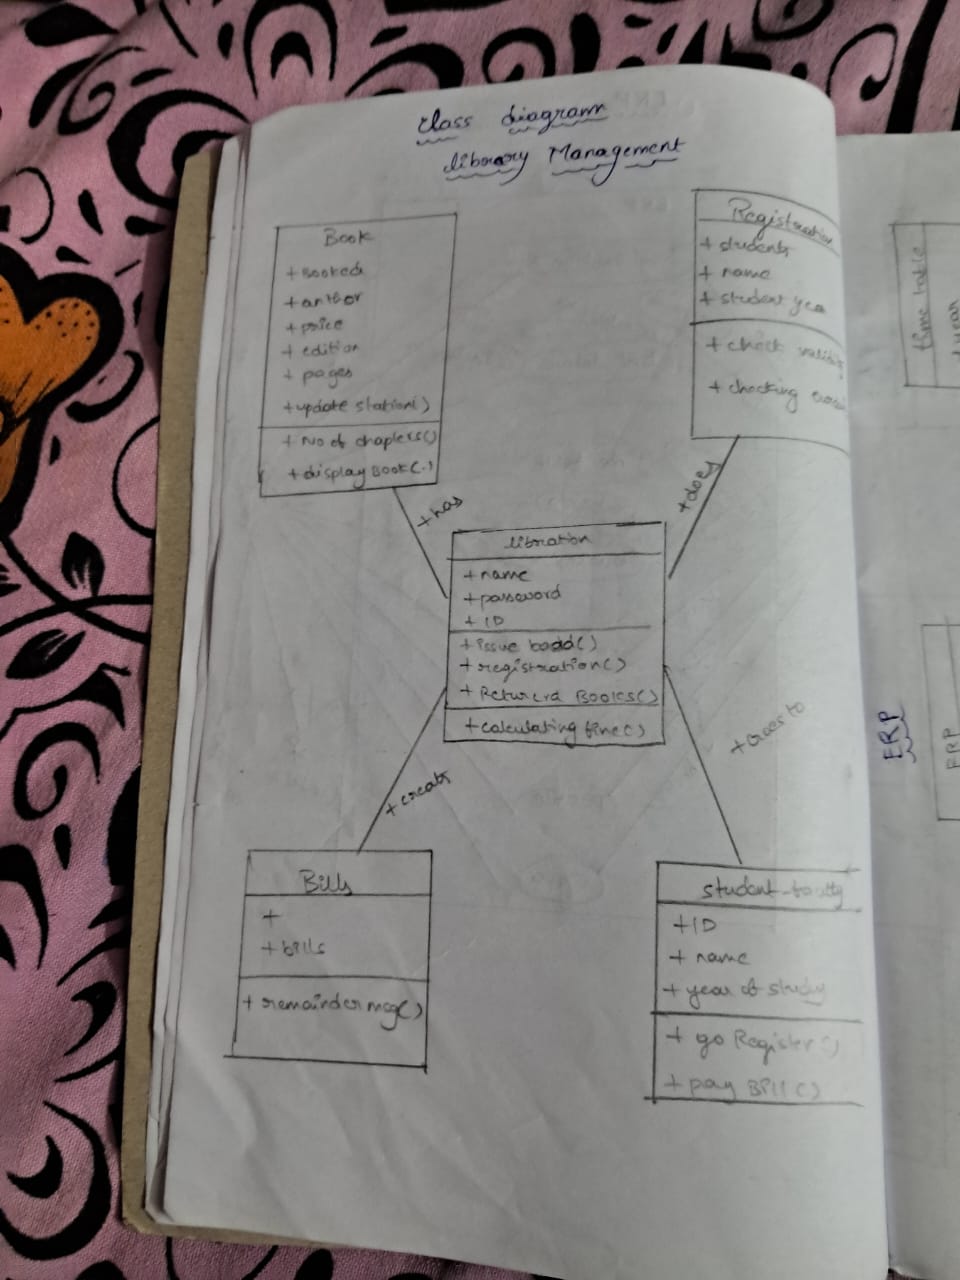 class diagram
library Management
Book
+ Booked
+ author
+ price
+ edition
+ pages
+ update station()
+ No of chapters()
+ display Book(.)
Registration
+ students
+ name
+ student year
+ check
+ checking
+ has
+ does
libration
+ name
+ password
+ ID
+ issue badd()
+ registration()
+ Returerd Books()
+ calculating fine()
+ create
+ Goes to
Bills
+
+ bills
+ remainder msg()
student
+ ID
+ name
+ year of study
+ go Register()
+ pay Bill()
time table
+ year
ERP
ERP